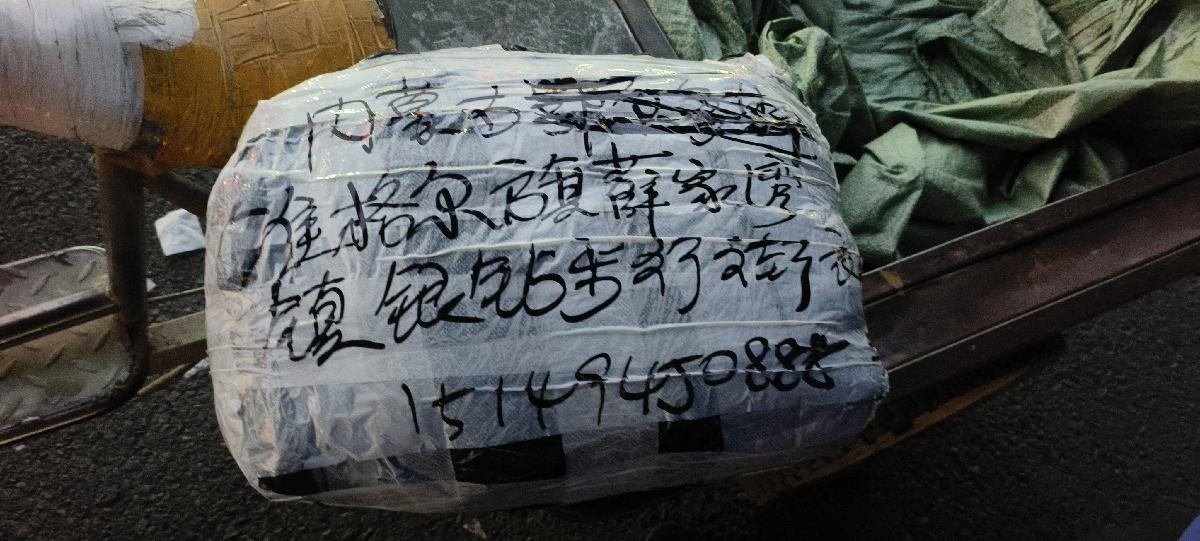 内蒙古
准格尔旗薛家湾
镇银钻步行街
15149450888